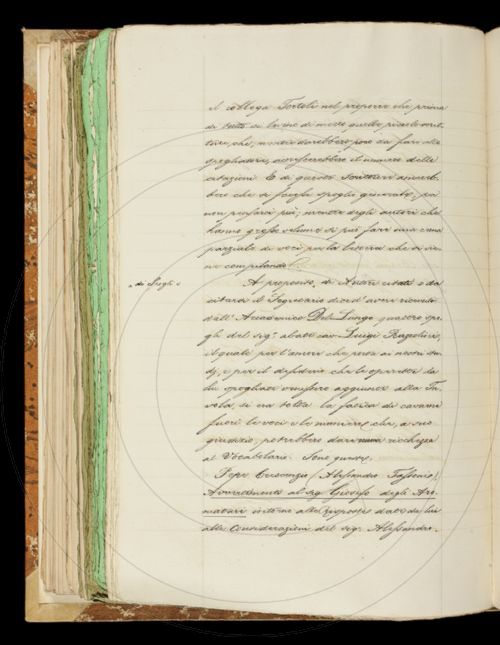 il collega Tortoli nel proporre che prima
di tutto si levino di mezzo quelle piccole scrit-
ture, che, mentre darebbero poco da fare allo
spogliatore, accrescerebbero il numero delle
citazioni. E di queste scritture
bero che si facesse spoglio generale, per
non pensarci più; mentre degli autori che
hanno grosso volume si può fare una cerna
parziale di voci per la lettera che si vie-
ne compilando.
di Spogli
A proposito di Autori citati o da
citarsi il Segretario dice d'aver ricevuto
dall'Accademico Del Lungo quattro spo-
gli del sig.r abate cav. Luigi Razzolini,
il quale per l'amore che porta ai nostri stu-
dj, e per il desiderio che le operette da
lui spogliate venissero aggiunte alla Ta-
vola, si era tolta la fatica di cavarne
fuori le voci e le maniere che, a suo
giudizio, potrebbero dare nuova ricchezza
al Vocabolario. Sono queste.
Pepe Crescenzio (Alessandro Tassoni),
Avvertimenti al sig. Giosesse degli Aro-
matari intorno alle risposte date da lui
alle Considerazioni del sig. Alessandro